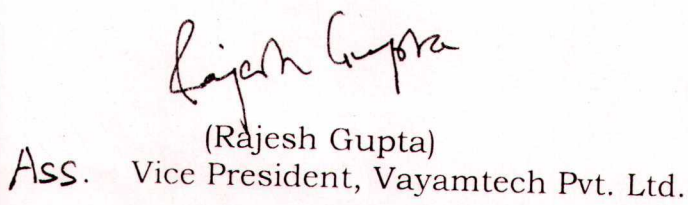 Rajesh Gupta
(Rajesh Gupta)
Ass. Vice President, Vayamtech Pvt. Ltd.